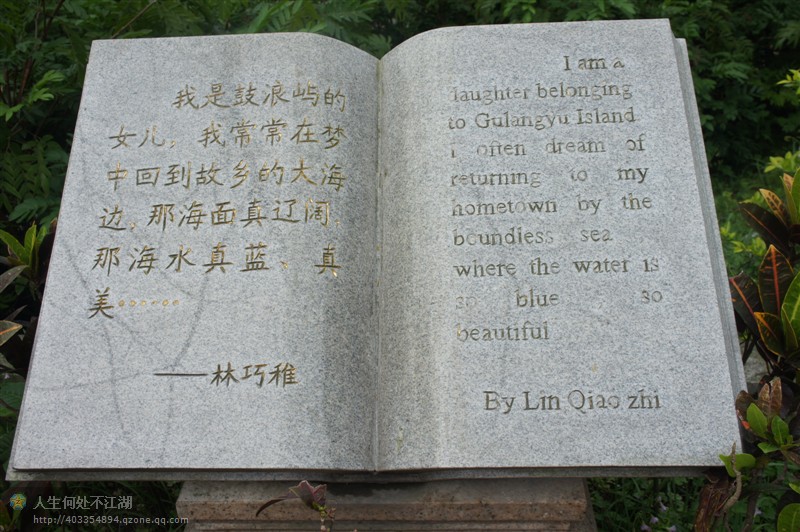 我是鼓浪屿的
女儿，我常常在梦
中回到故乡的大海
边，那海面真辽阔，
那海水真蓝、真
美······
——林巧稚
I am a
daughter belonging
to Gulangyu Island
i often dream of
returning to my
hometown by the
boundless sea
where the water is
so blue so
beautiful
By Lin Qiao zhi
人生何处不江湖
http://403354894.qzone.qq.com